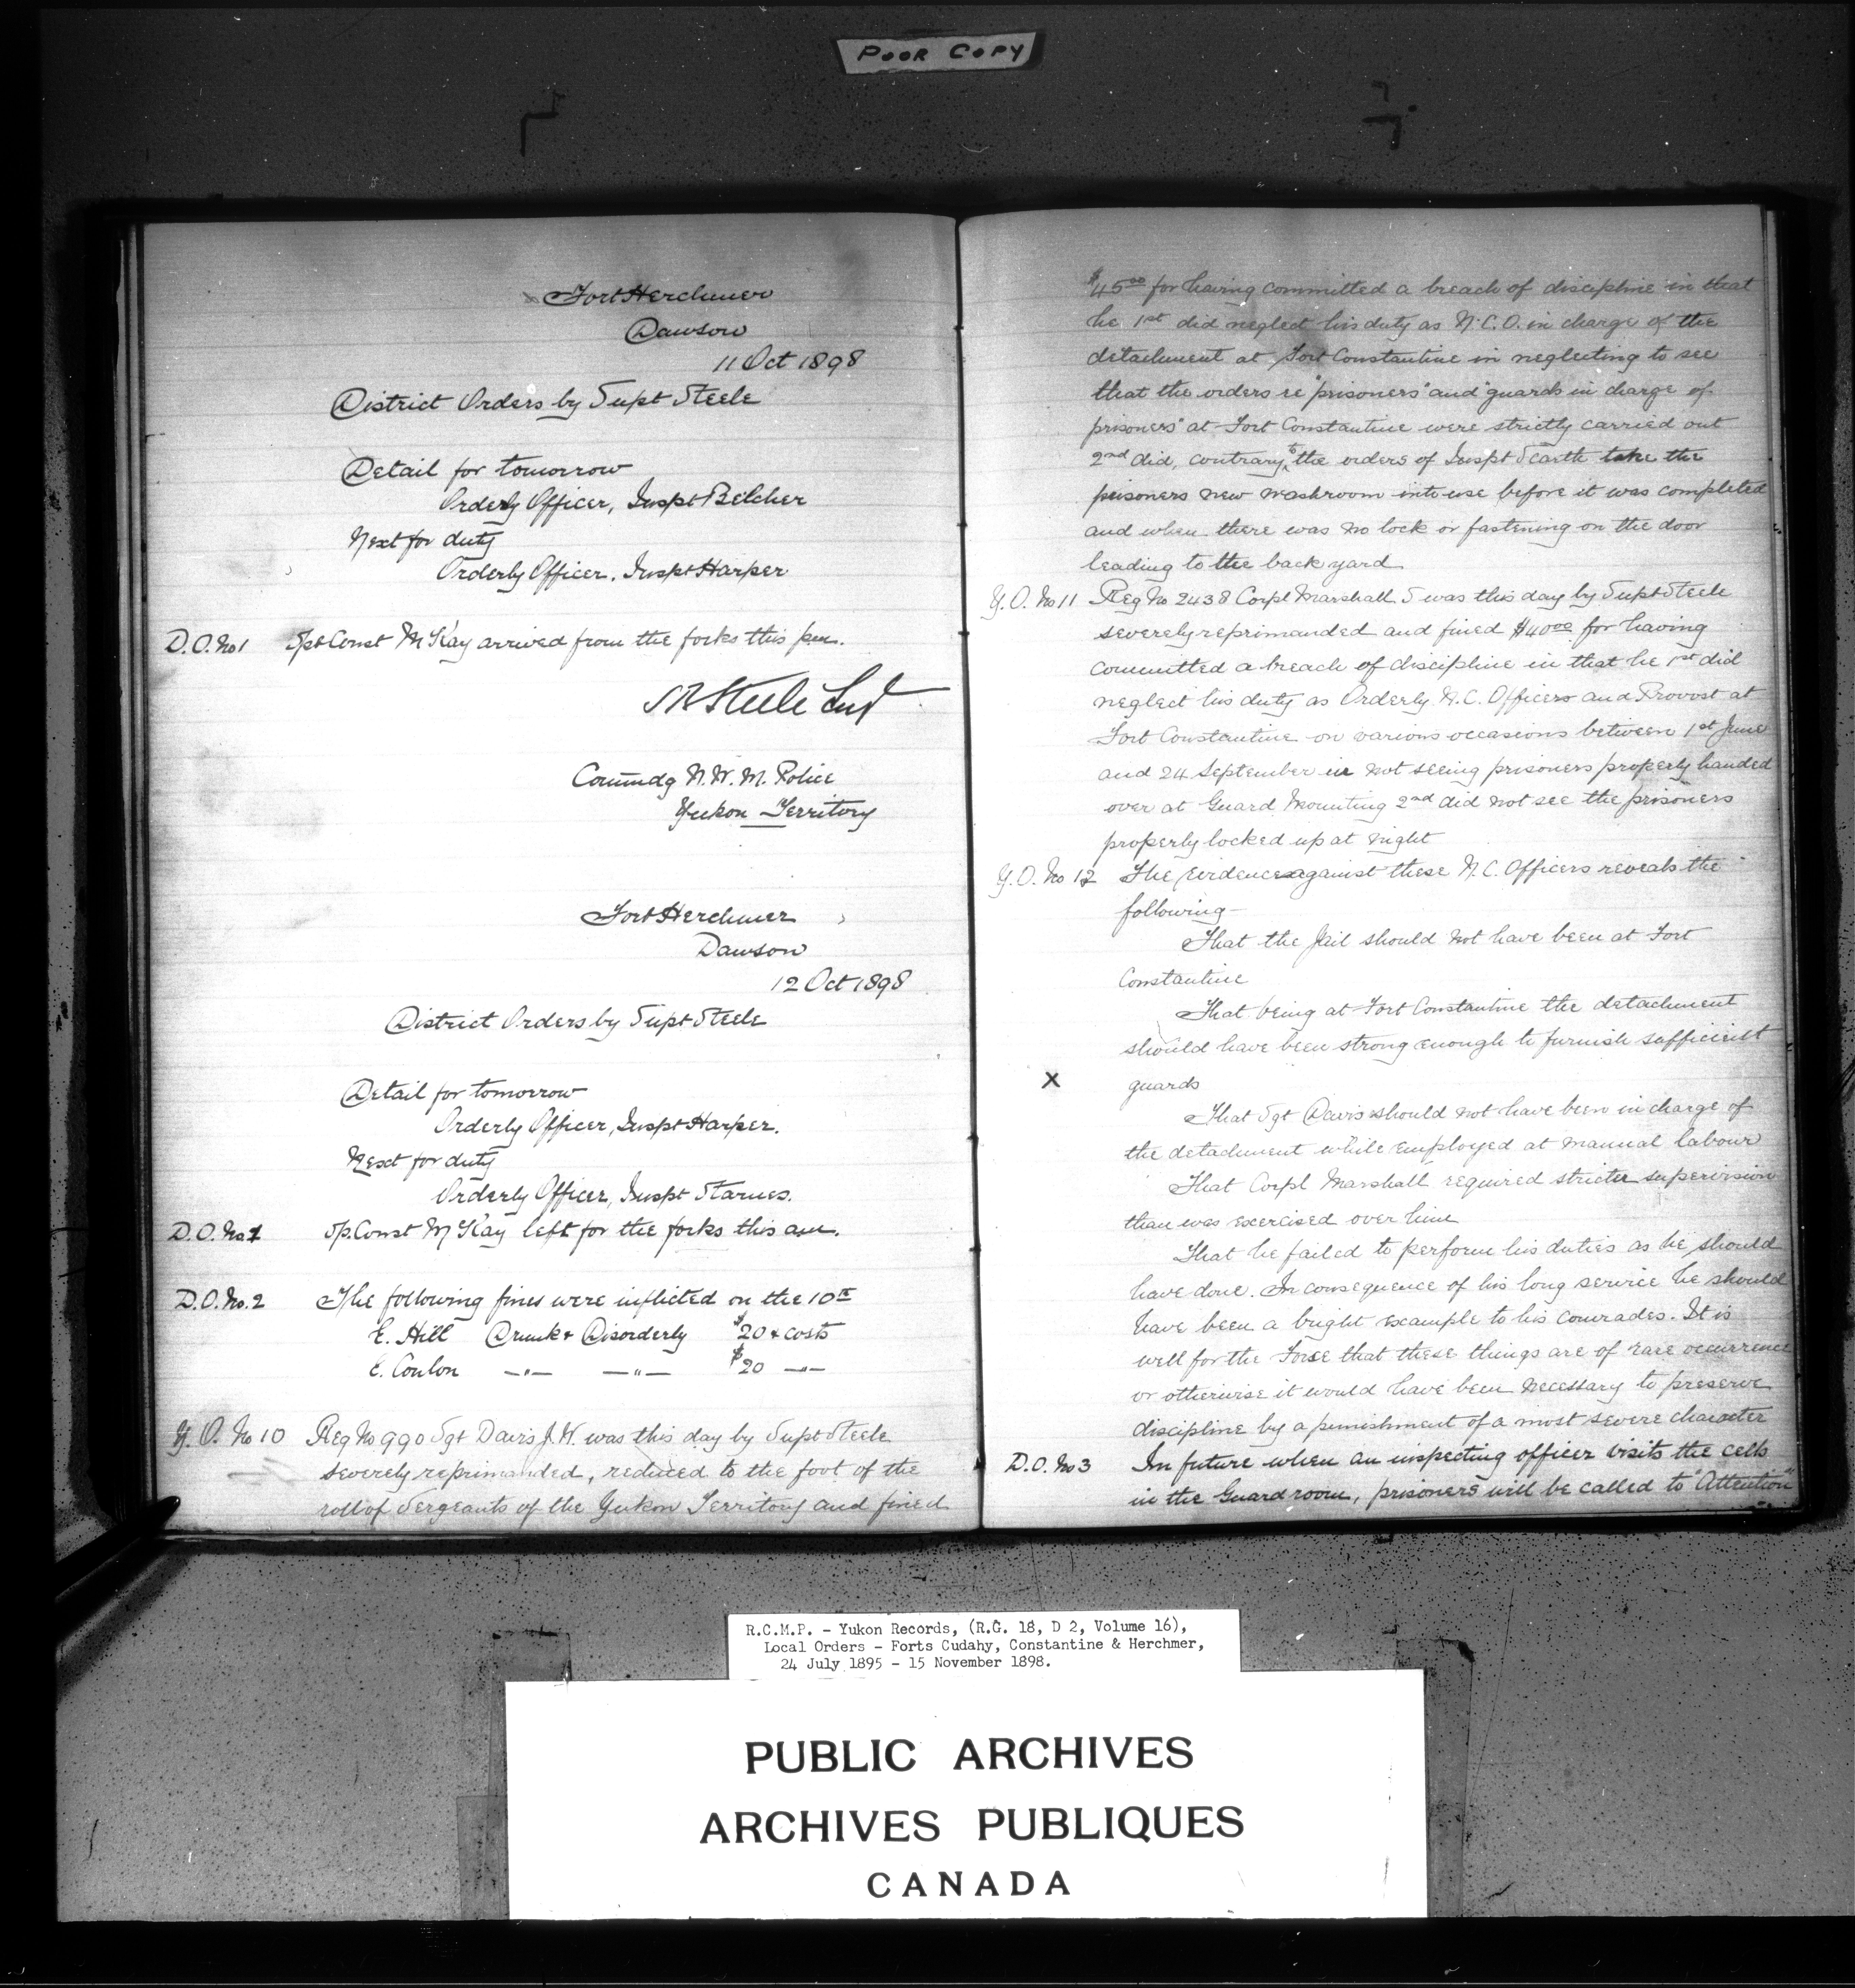 POOR COPY
Fort Herchmer
Dawson
11 Oct 1898
District Orders by Supt Steele
Detail for tomorrow
Orderly Officer, Inspt Belcher
Next for duty
Orderly Officer, Inspt Harper
D.O. No 1 Spt Const McKay arrived from the forks this pm.
SB Steele Supt
Commdg N.W.M. Police
Yukon Territory
Fort Herchmer
Dawson
12 Oct 1898
District Orders by Supt Steele
Detail for tomorrow
Orderly Officer, Inspt Harper.
Next for duty
Orderly Officer, Inspt Starnes.
D.O. No 1 Sp. Const McKay left for the forks this am.
D.O. No. 2 The following fines were inflicted on the 10th
E. Hill Drunk & Disorderly $20 & costs
E. Coulon —"— —"— $20 —"—
Y.O. No 10 Reg No 990 Sgt Davis J.H. was this day by Supt Steele
severely reprimanded, reduced to the foot of the
roll of Sergeants of the Yukon Territory and fined
$45 00 for having committed a breach of discipline in that
he 1st did neglect his duty as N.C.O. in charge of the
detachment at Fort Constantine in neglecting to see
that the orders re "prisoners" and "guards in charge of
prisoners" at Fort Constantine were strictly carried out
2nd did, contrary to the orders of Inspt Scarth take the
prisoners new washroom into use before it was completed
and when there was no lock or fastening on the door
leading to the back yard
Y.O. No 11 Reg No 2438 Corpl Marshall S was this day by Supt Steele
severely reprimanded and fined $40 00 for having
committed a breach of discipline in that he 1st did
neglect his duty as Orderly N.C. Officer and Provost at
Fort Constantine on various occasions between 1st June
and 24 September in not seeing prisoners properly handed
over at Guard Mounting 2nd did not see the prisoners
properly locked up at night
Y.O. No 12 The evidence against these N.C. Officers reveals the
following-
That the Jail should not have been at Fort
Constantine
That being at Fort Constantine the detachment
should have been strong enough to furnish sufficient
X guards
That Sgt Davis should not have been in charge of
the detachment while employed at manual labour
That Corpl Marshall required stricter supervision
than was exercised over him
That he failed to perform his duties as he should
have done. In consequence of his long service he should
have been a bright example to his comrades. It is
well for the Force that these things are of rare occurrence
or otherwise it would have been necessary to preserve
discipline by a punishment of a most severe character
D.O. No 3 In future when an inspecting officer visits the cells
in the Guard room, prisoners will be called to "Attention"
R.C.M.P. - Yukon Records, (R.G. 18, D 2, Volume 16),
Local Orders - Forts Cudahy, Constantine & Herchmer,
24 July 1895 - 15 November 1898.
PUBLIC ARCHIVES
ARCHIVES PUBLIQUES
CANADA